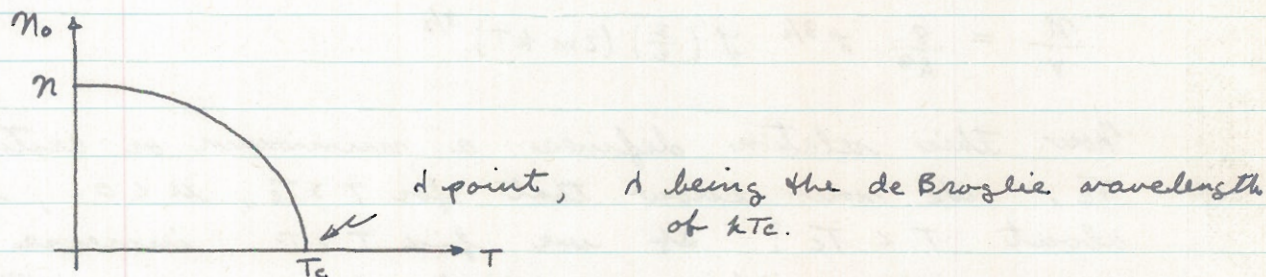 n₀
n
λ point, λ being the de Broglie wavelength
of kTc.
Tc
T